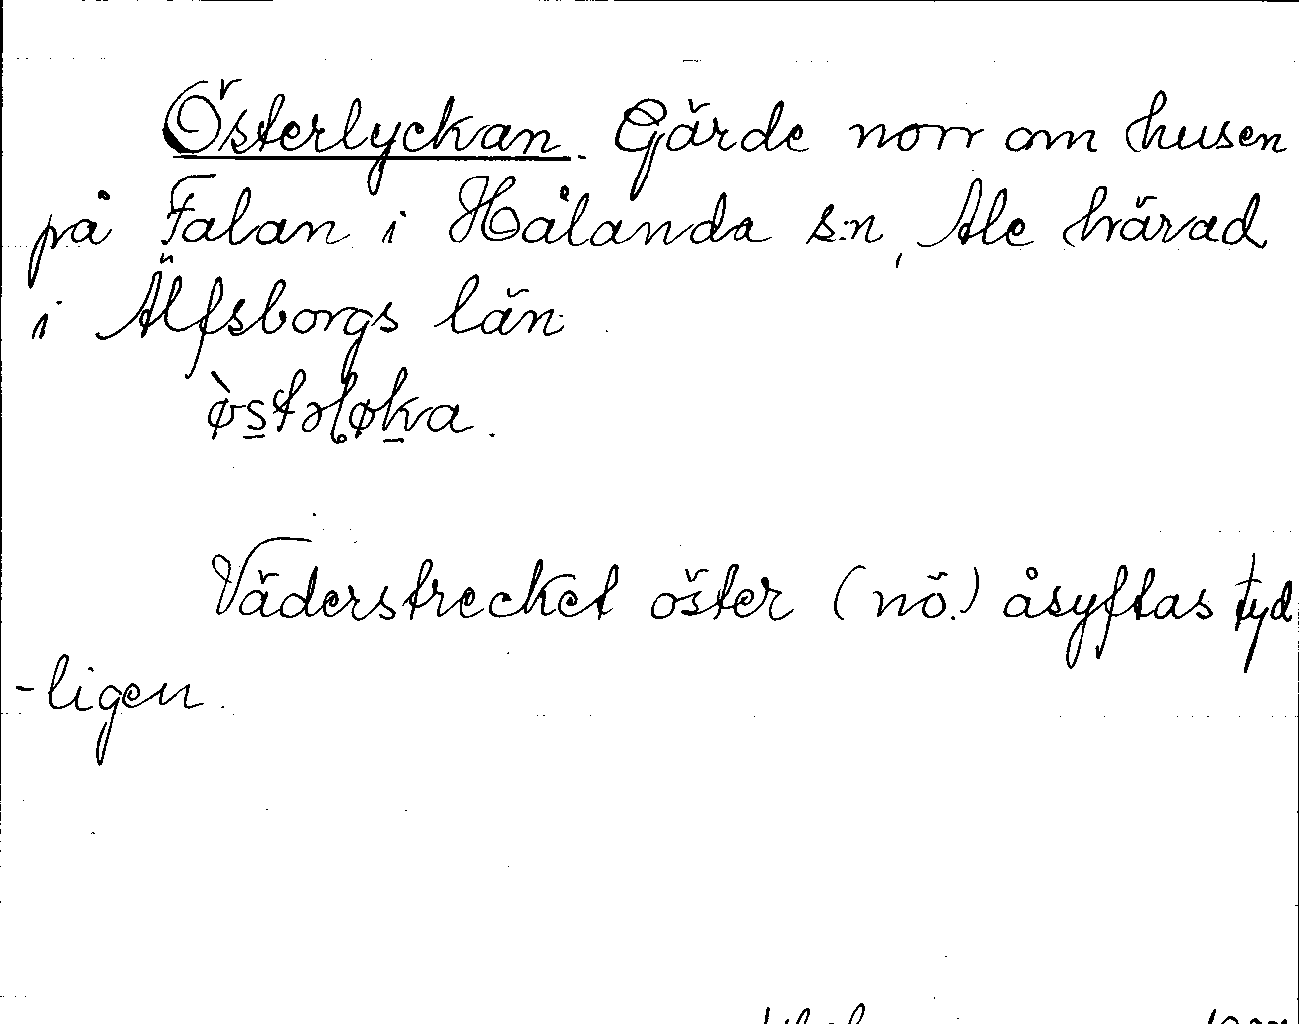 Österlyckan. Gärde norr om husen
på Falan i Hålanda s:n, Ale härad
i Älfsborgs län.
ø̀s̱təɭøḵa.
Väderstrecket öster (nö.) åsyftas tyd
-ligen.